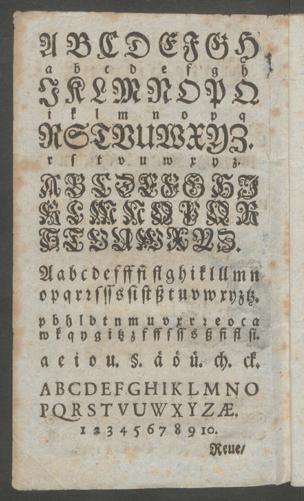 A B C D E F G H
a b c d e f g h
J K L M N O P Q
i k l m n o p q
R S T V U W X Y Z.
r s t v u w x y z.
A B C D E F G H J
K L M N O P Q R
S T V U W X Y Z.
A a b c d e f ff fi fl g h i k l ll m n
o p q r ꝛ ſ ſſ s ſi ſt ß t u v w x y z tz.
p b h l d t n m u v x r z e o c a
w k q y g i tz f ff ſ ſſ s ß fi fl ſi.
a e i o u. §. aͤ oͤ uͤ. ch. ck.
A B C D E F G H I K L M N O
P Q R S T V U W X Y Z Æ.
1 2 3 4 5 6 7 8 9 10.
Neue/